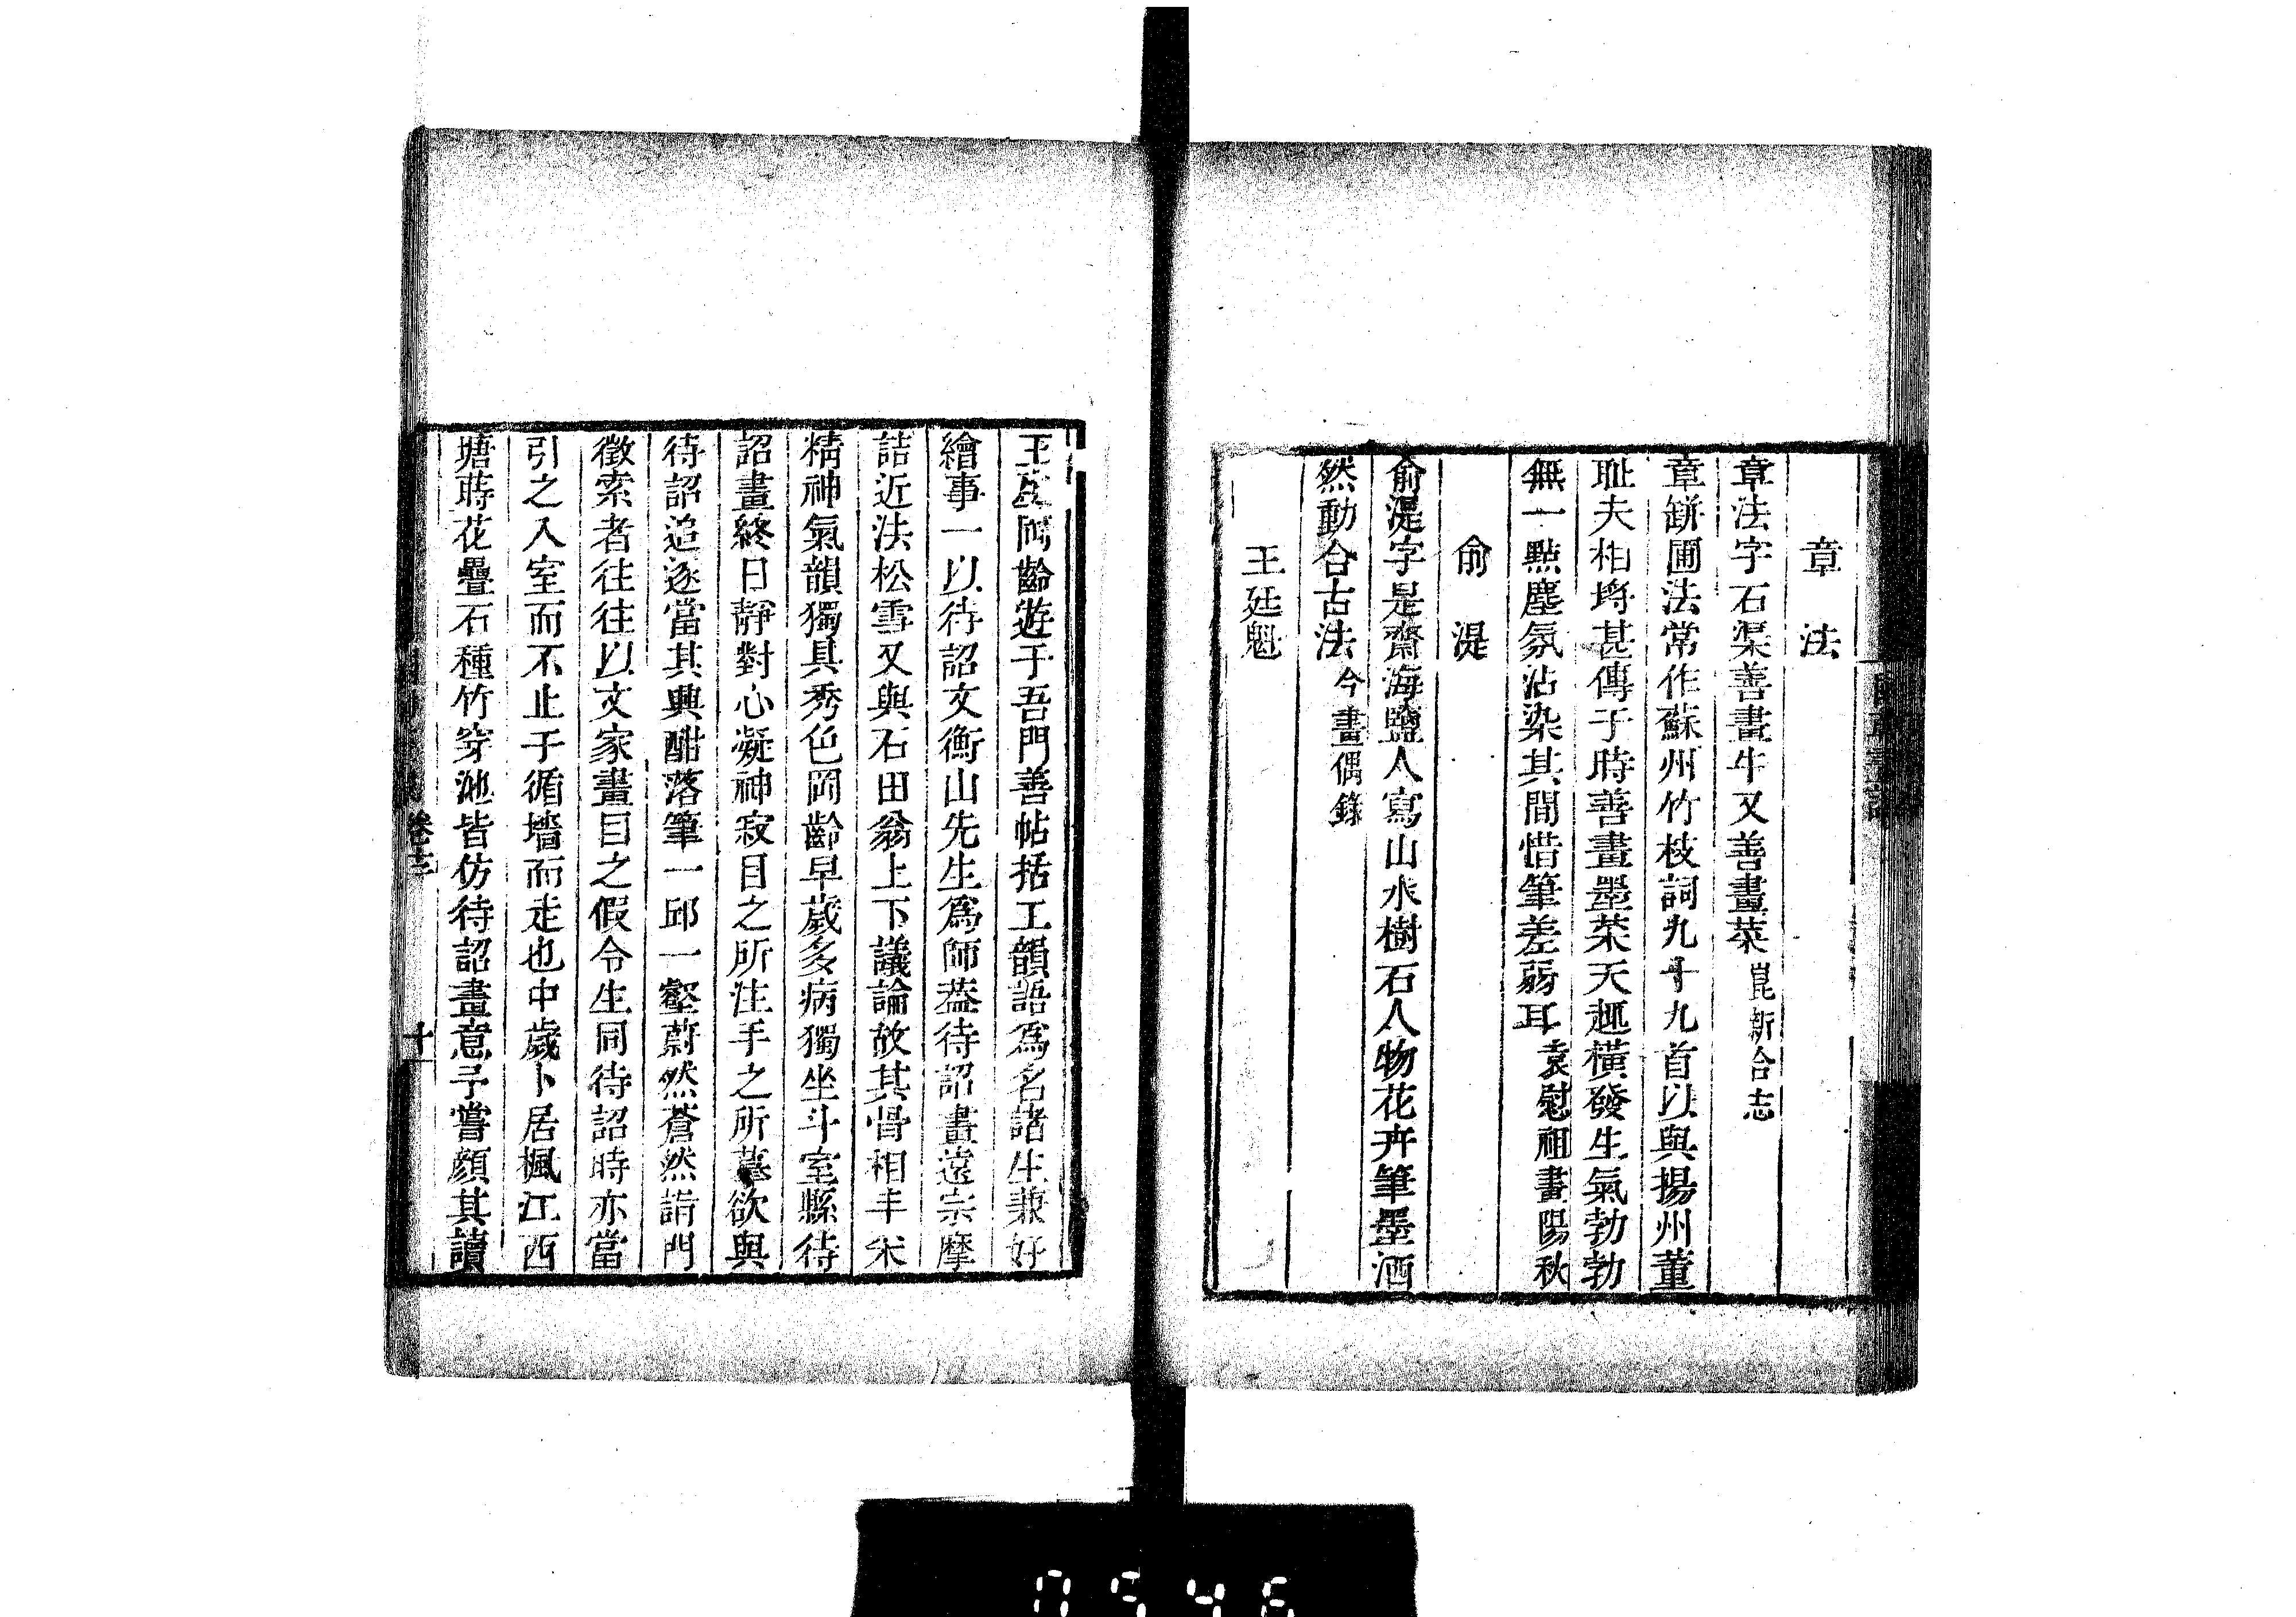 章法
章法字石渠善畫牛又善畫菜崑新合志
章餅圃法常作蘇州竹枝詞九十九首以與揚州董
耻夫相埒甚傳于時善畫墨菜天趣橫發生氣勃勃
無一點塵氛沾染其間惜筆差弱耳袁慰祖畫陽秋
俞湜
俞湜字是齋海鹽人寫山水樹石人物花卉筆墨洒
然動合古法今畫偶錄
王廷魁
王岡齡遊于吾門善帖括工韻語為名諸生兼好
繪事一以待詔文衡山先生爲師葢待詔畫遠宗摩
詰近法松雪又與石田翁上下議論故其骨相丰米
精神氣韻獨具秀色岡齡早歲多病獨坐斗室縣待
詔畫終日靜對心凝神寂目之所注手之所摹欲與
待詔追逐當其興酣落筆一邱一壑蔚然蒼然詣門
徵索者往往以文家畫目之假令生同待詔時亦當
引之入室而不止于循墻而走也中歲卜居楓江西
塘蒔花疊石種竹穿池皆仿待詔畫意予嘗顏其讀
卷十二
十一
0546